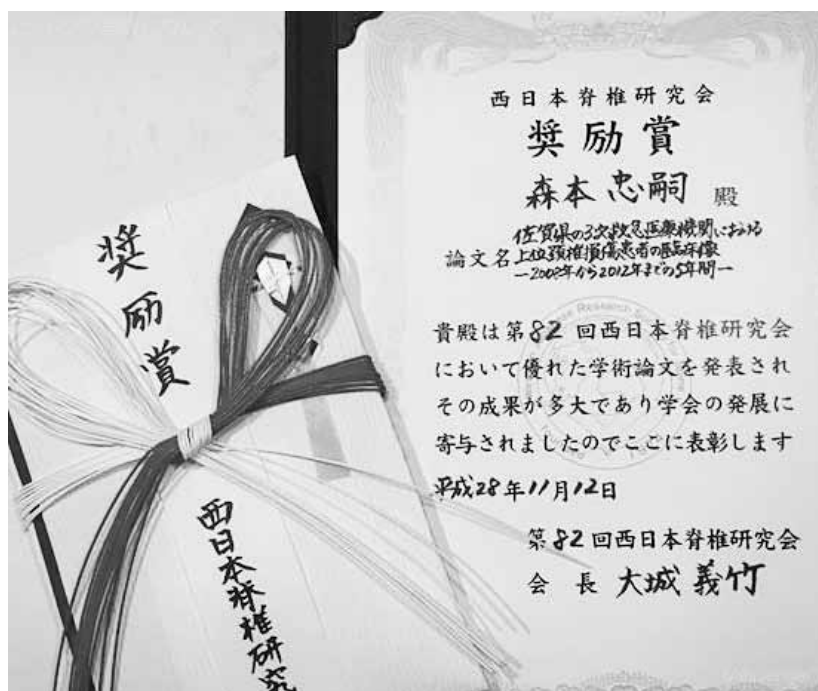 奨励賞
西日本脊椎研究
西日本脊椎研究会
奨励賞
森本忠嗣 殿
論文名
佐賀県の3次救急医療機関における
上位頚椎損傷患者の臨床像
―2008年から2012年までの5年間―
貴殿は第82回西日本脊椎研究会
において優れた学術論文を発表され
その成果が多大であり学会の発展に
寄与されましたのでここに表彰します
平成28年11月12日
第82回西日本脊椎研究会
会長 大城義竹